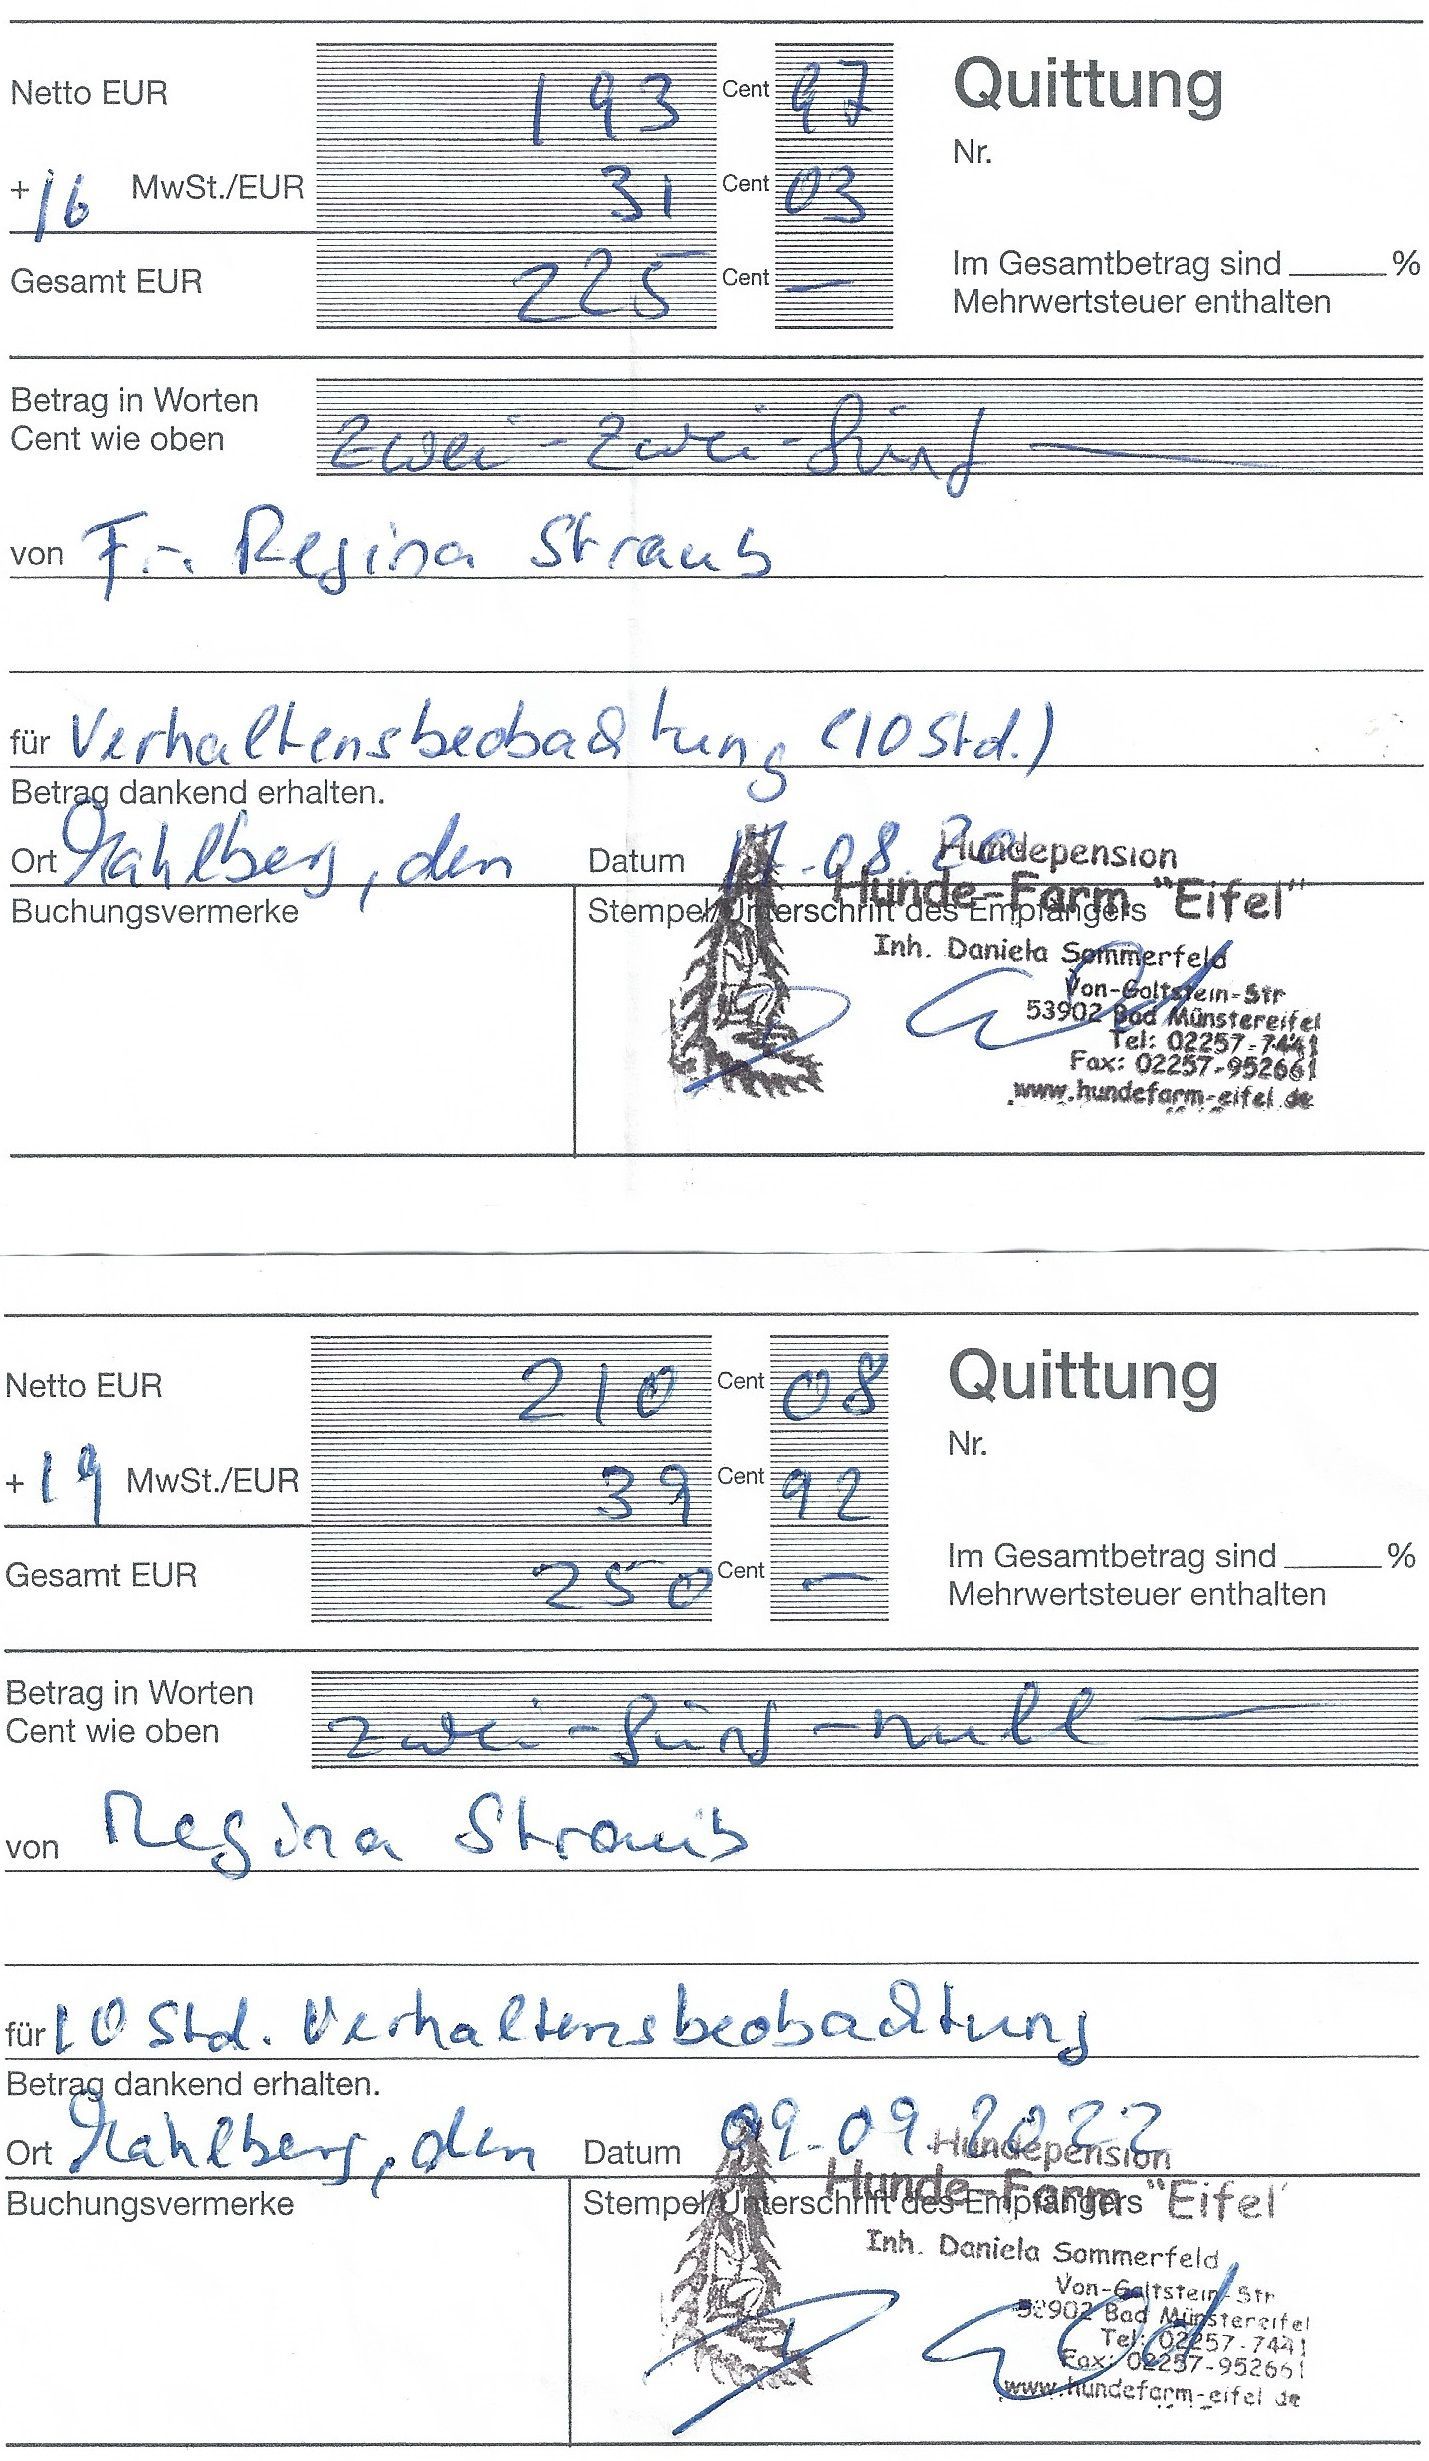 Netto EUR 193 Cent 97 Quittung
Nr.
+ 16 MwSt./EUR 31 Cent 03
Gesamt EUR 225 Cent — Im Gesamtbetrag sind ______ %
Mehrwertsteuer enthalten
Betrag in Worten
Cent wie oben zwei-zwei-fünf —
von Fr. Regina Straub
für Verhaltensbeobachtung (10 Std.)
Betrag dankend erhalten.
Ort Mahlberg, den Datum 11.08.20
Hundepension
Buchungsvermerke Stempel/Unterschrift des Empfängers
Hunde-Farm "Eifel"
Inh. Daniela Sommerfeld
Von-Goltstein-Str
53902 Bad Münstereifel
Tel: 02257-7441
Fax: 02257-952661
www.hundefarm-eifel.de
Netto EUR 210 Cent 08 Quittung
Nr.
+ 19 MwSt./EUR 39 Cent 92
Gesamt EUR 250 Cent — Im Gesamtbetrag sind ______ %
Mehrwertsteuer enthalten
Betrag in Worten
Cent wie oben zwei-fünf-null —
von Regina Straub
für 10 Std. Verhaltensbeobachtung
Betrag dankend erhalten.
Ort Mahlberg, den Datum 09.09.2022
Hundepension
Buchungsvermerke Stempel/Unterschrift des Empfängers
Hunde-Farm "Eifel"
Inh. Daniela Sommerfeld
Von-Goltstein-Str
53902 Bad Münstereifel
Tel: 02257-7441
Fax: 02257-952661
www.hundefarm-eifel de